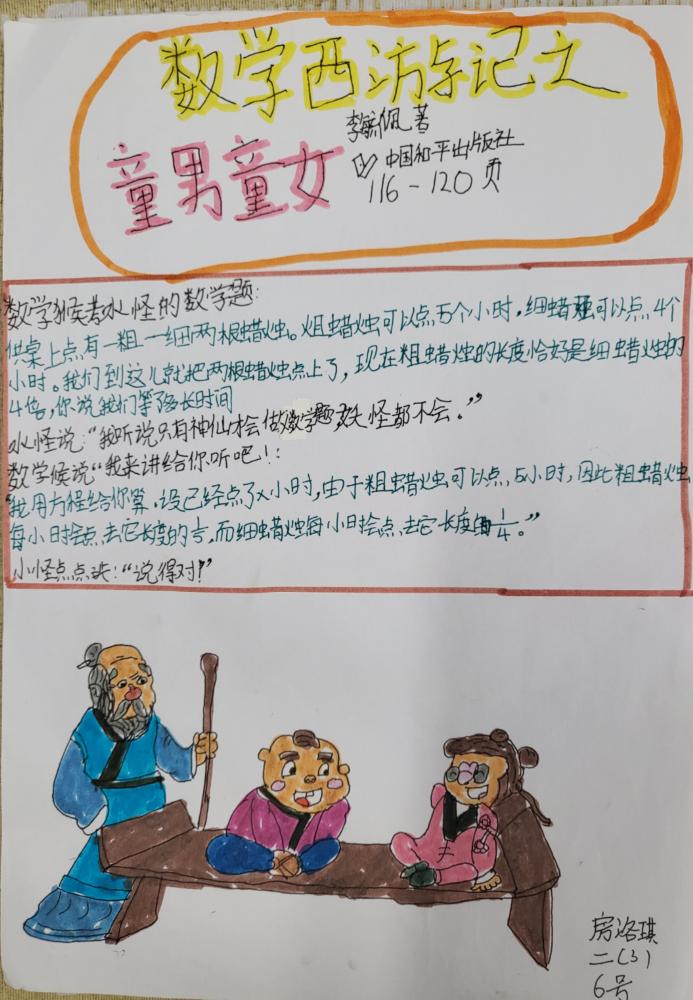 数学西游记之
童男童女
李毓佩 著
中国和平出版社
116-120页
数学猴考水怪的数学题:
供桌上点有一粗一细两根蜡烛。粗蜡烛可以点5个小时,细蜡烛可以点4个
小时。我们到这儿就把两根蜡烛点上了,现在粗蜡烛的长度恰好是细蜡烛的
4倍,你说我们等了多长时间
水怪说:“我听说只有神仙才会做数学题,妖怪都不会。”
数学猴说“我来讲给你听吧!:
“我用方程给你算.设已经点了x小时,由于粗蜡烛可以点5小时,因此粗蜡烛
每小时会点去它长度的1/5,而细蜡烛每小时会点去它长度的1/4。”
小怪点点头:“说得对!”
房洛琪
二(3)
6号